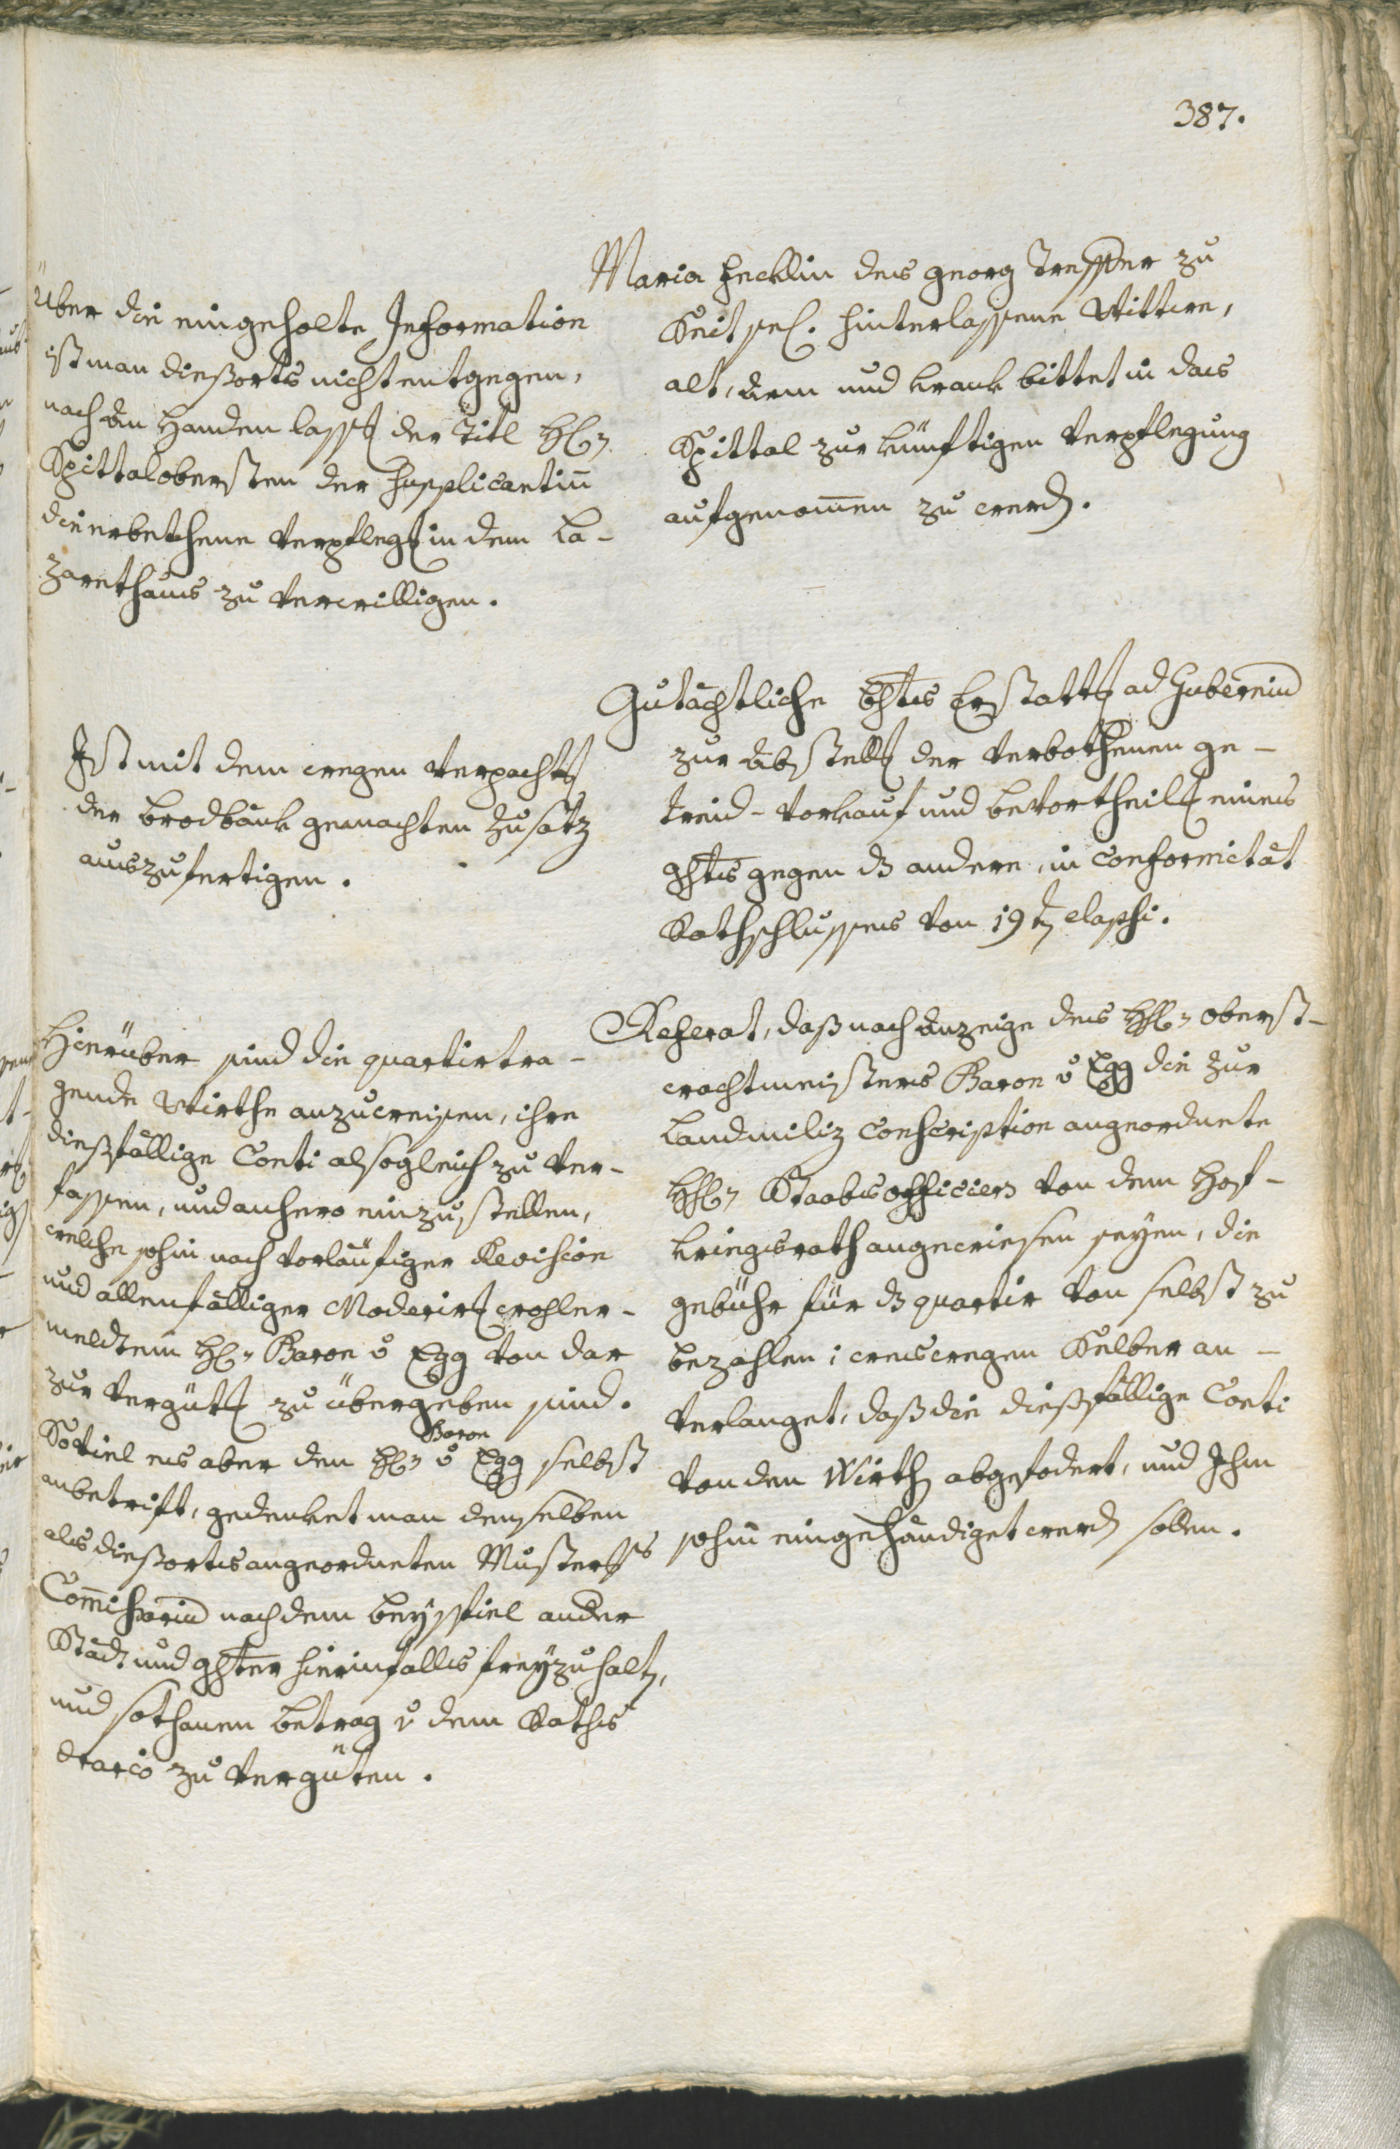 387.
Maria Hecklin des Georg Tresser zu
Keit sel. hinterlassene Wittwe,
alt, arm und krank bittet in das
Spittal zur künftigen Verpflegung
aufgenom̄en zu werd.
Über die eingeholte Information
ist man diesorts nicht entgegen,
nach den Handen lass der Titl H
Spittalobersten der Supplicantin̄
die erbethene Verpfleg in dem La-
zarethaus zu verwilligen.
Gutächtliche Erstatt ad Gubernium
zur Abstell der verbothenen ge-
treid-Vorkauf und bevortheil eines
ghts gegen ds andere, in Conformitát
Rathschlusses von 19t elapsi.
Ist mit dem wegen Verpacht
der Brodbänk gemachten Zusatz
auszufertigen.
Referat, daß nach Anzeige des H Oberst-
wachtmeisters Baron v Egg die zur
Landmiliz Conscription angeordnete
H Staabsofficiers von dem Hof-
kriegsrath angewiesen seyen, die
gebühr für ds quartir von selbst zu
bezahlen; weswegen Selber an-
verlanget, daß die dießfällige Conti
von den Wirth abgefodert, und Ihm
sohin eingehändiget werd sollen.
Hierüber sind die quartirtra-
gende Wirthe anzuweisen, ihre
dießfällige Conti alsogleich zu ver-
fassen, und anhero einzustellen,
welche sohin nach vorläufiger Revision
und allenfälliger Moderir wohler-
meldtem H Baron v Egg von dar
zur Vergüt zu übergeben sind.
Soviel es aber den H Baron v Egg selbst
anbetrift, gedenket man denselben
als diesorts angeordneten Musters
Com̄issarium nach dem Beyspiel ander
Städt und ghter hierinfalls frey zu halt,
und sothanen betrag v dem Raths
Erario zu vergüten.